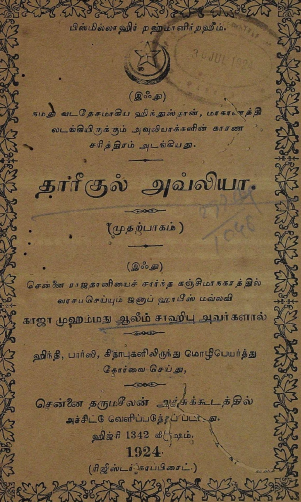 பிஸ்மில்லாஹிர் றஹ்மானிர்றஹீம்.
(இஃது)
நமது வடதேசமாகிய ஹிந்துஸ்தான், மாகாணத்தி
லடங்கியிருக்கும் அவுலியாக்களின் காரண
சரித்திரம் அடங்கியது.
தாரீகுல் அவ்லியா.
(முதற்பாகம்)
(இஃது)
சென்னை ராஜதானியைச் சார்ந்த
வாசஞ்செய்யும் ஜனாப் ஹாபிஸ் மவ்லவி
காஜா முஹம்மது ஆலிம் சாஹிபு அவர்களால்
ஹிந்தி, பார்ஸி, கிதாபுகளிலிருந்து மொழிபெயர்த்து
கோர்வை செய்து,
சென்னை தருமசீலன் அச்சுக்கூடத்தில்
அச்சிட்டு வெளிப்படுத்தப்பட்டது.
ஹிஜ்ரி 1342 வருஷம்,
1924.
(ரிஜிஸ்டர் காப்பிரைட்.)